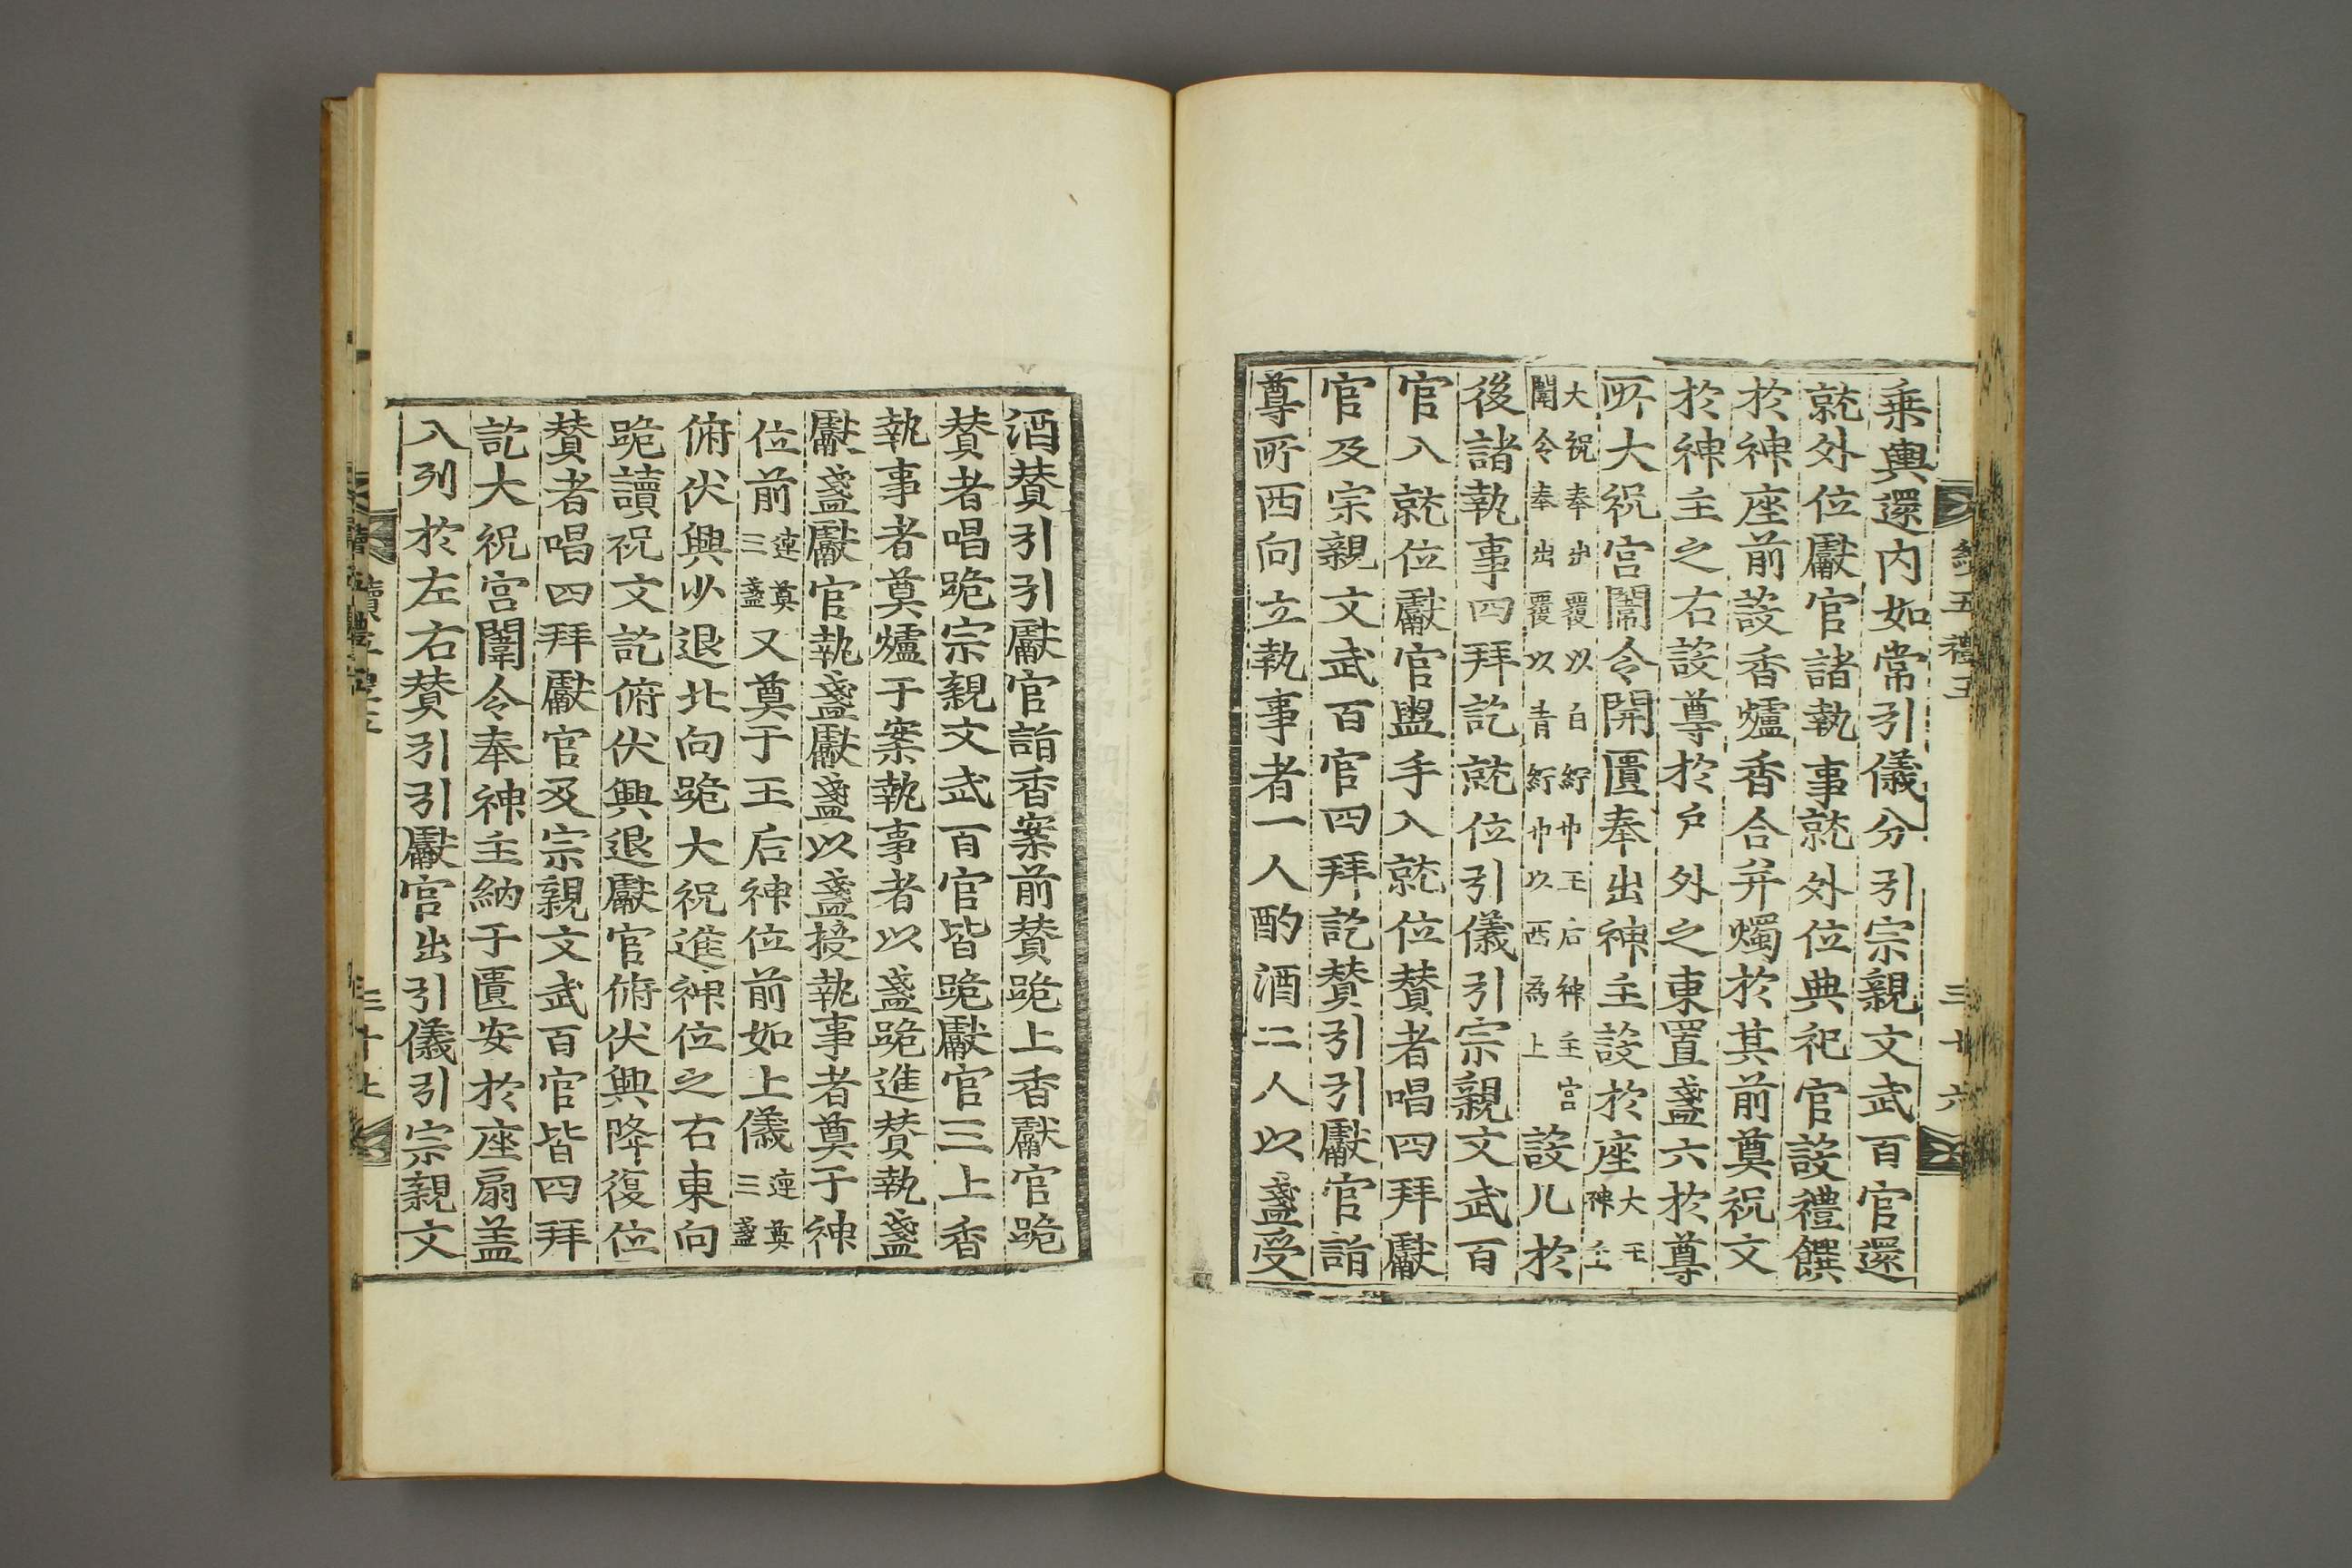 乗輿還内如常引儀分引宗親文武百官還
就外位獻官諸執事就外位典祀官設禮饌
於神座前設香爐香合并燭於其前奠祝文
於神主之右設尊於户外之東置盞六於尊
所大祝宫闈令開匱奉出神主設於座大王神主
大祝奉出覆以白紵巾王后神主宫闈令奉出覆以青紵巾以西爲上設几於
後諸執事四拜訖就位引儀引宗親文武百
官入就位獻官盥手入就位賛者唱四拜獻
官及宗親文武百官四拜訖賛引引獻官詣
尊所西向立執事者一人酌酒二人以盞受
續五禮五
三十六
酒賛引引獻官詣香案前賛跪上香獻官跪
賛者唱跪宗親文武百官皆跪獻官三上香
執事者奠爐于案執事者以盞跪進賛執盞
獻盞獻官執盞獻盞以盞授執事者奠于神
位前連奠三盞又奠于王后神位前如上儀連奠三盞
俯伏興少退北向跪大祝進神位之右東向
跪讀祝文訖俯伏興退獻官俯伏興降復位
賛者唱四拜獻官及宗親文武百官皆四拜
訖大祝宫闈令奉神主納于匱安於座扇盖
入列於左右賛引引獻官出引儀引宗親文
三十七